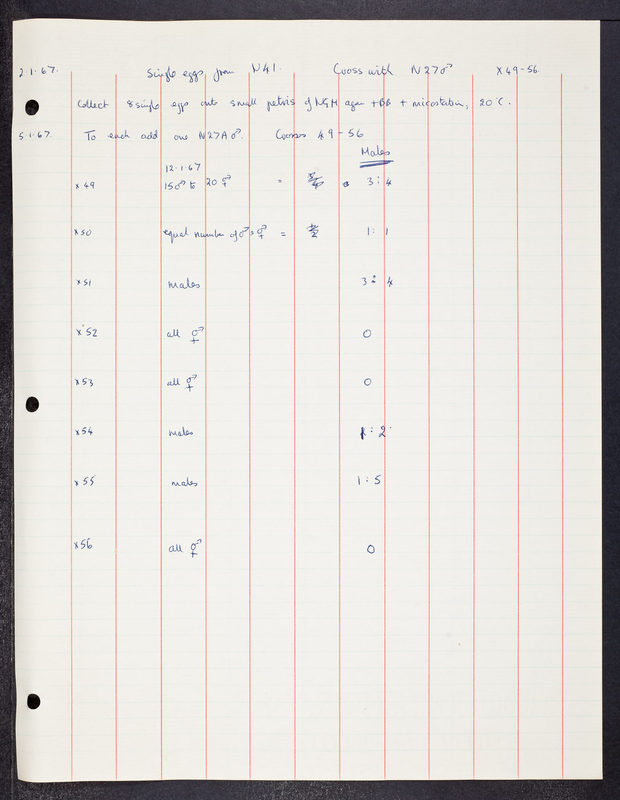 2.1.67. Single eggs from N41. Cross with N27♂ X49-56
Collect 8 single eggs onto small petris of NGM agar + BB + micostatin, 20°C.
5.1.67. To each add one N27A♂. Crosses 49-56
Males
12.1.67
x49 15♂ to 20 ⚥ = 3:4
x50 equal number of ♂s ⚥ = 1:1
x51 males 3:4
x52 all ⚥ 0
x53 all ⚥ 0
x54 males 1:2
x55 males 1:5
x56 all ⚥ 0